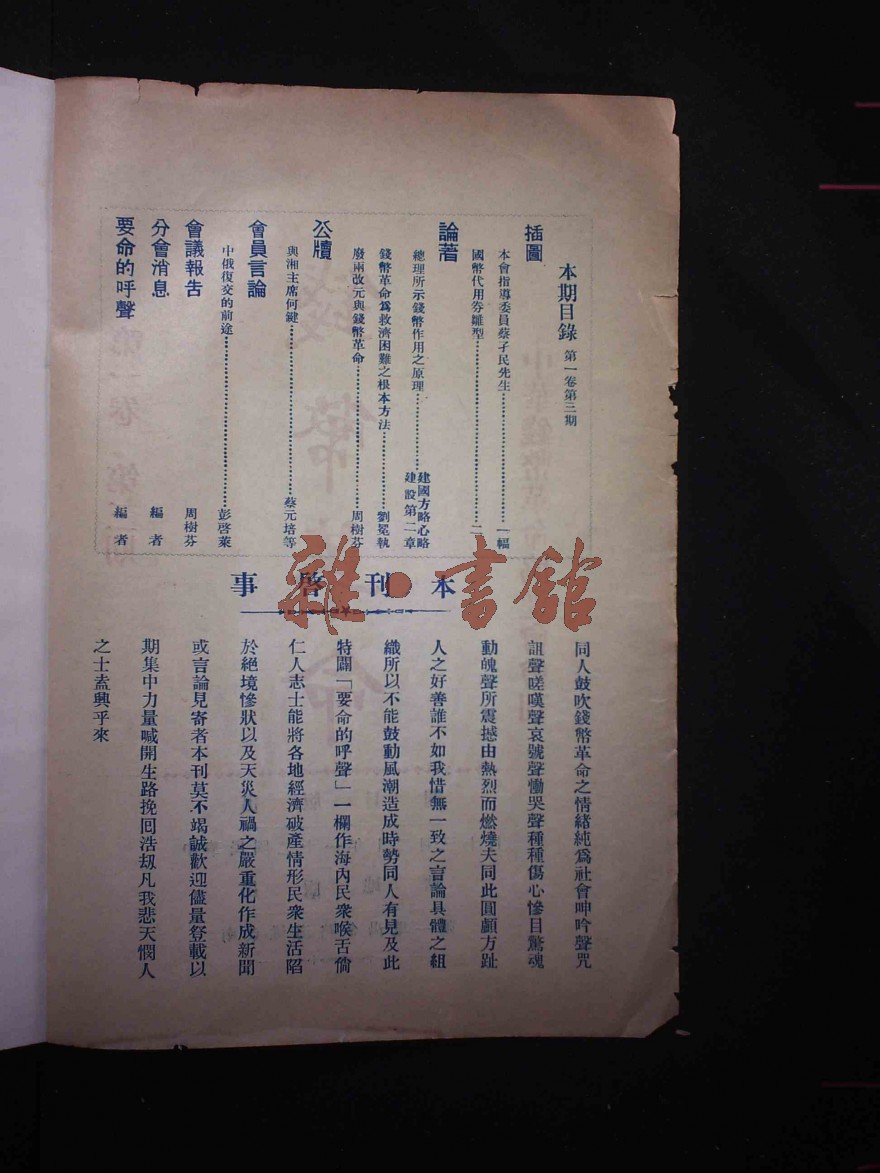 本期目錄 第一卷第三期
插圖
本會指導委員蔡孑民先生…………一幅
國幣代用券雛型…………二
論著
總理所示錢幣作用之原理…………建國方略心略建設第二章
錢幣革命爲救濟困難之根本方法…………劉冕執
廢兩改元與錢幣革命…………周樹芬
公牘
與湘主席何鍵…………蔡元培等
會員言論
中俄復交的前途…………彭啓萊
會議報告 周樹芬
分會消息 編者
要命的呼聲 編者
本刊啓事
同人鼓吹錢幣革命之情緒純爲社會呻吟聲咒
詛聲嗟嘆聲哀號聲慟哭聲種種傷心慘目驚魂
動魄聲所震撼由熱烈而燃燒夫同此圓顱方趾
人之好善誰不如我惜無一致之言論具體之組
織所以不能鼓動風潮造成時勢同人有見及此
特闢「要命的呼聲」一欄作海內民衆喉舌倘
仁人志士能將各地經濟破產情形民衆生活陷
於絕境慘狀以及天災人禍之嚴重化作成新聞
或言論見寄者本刊莫不竭誠歡迎儘量登載以
期集中力量喊開生路挽囘浩刼凡我悲天憫人
之士盍興乎來
雜·書館